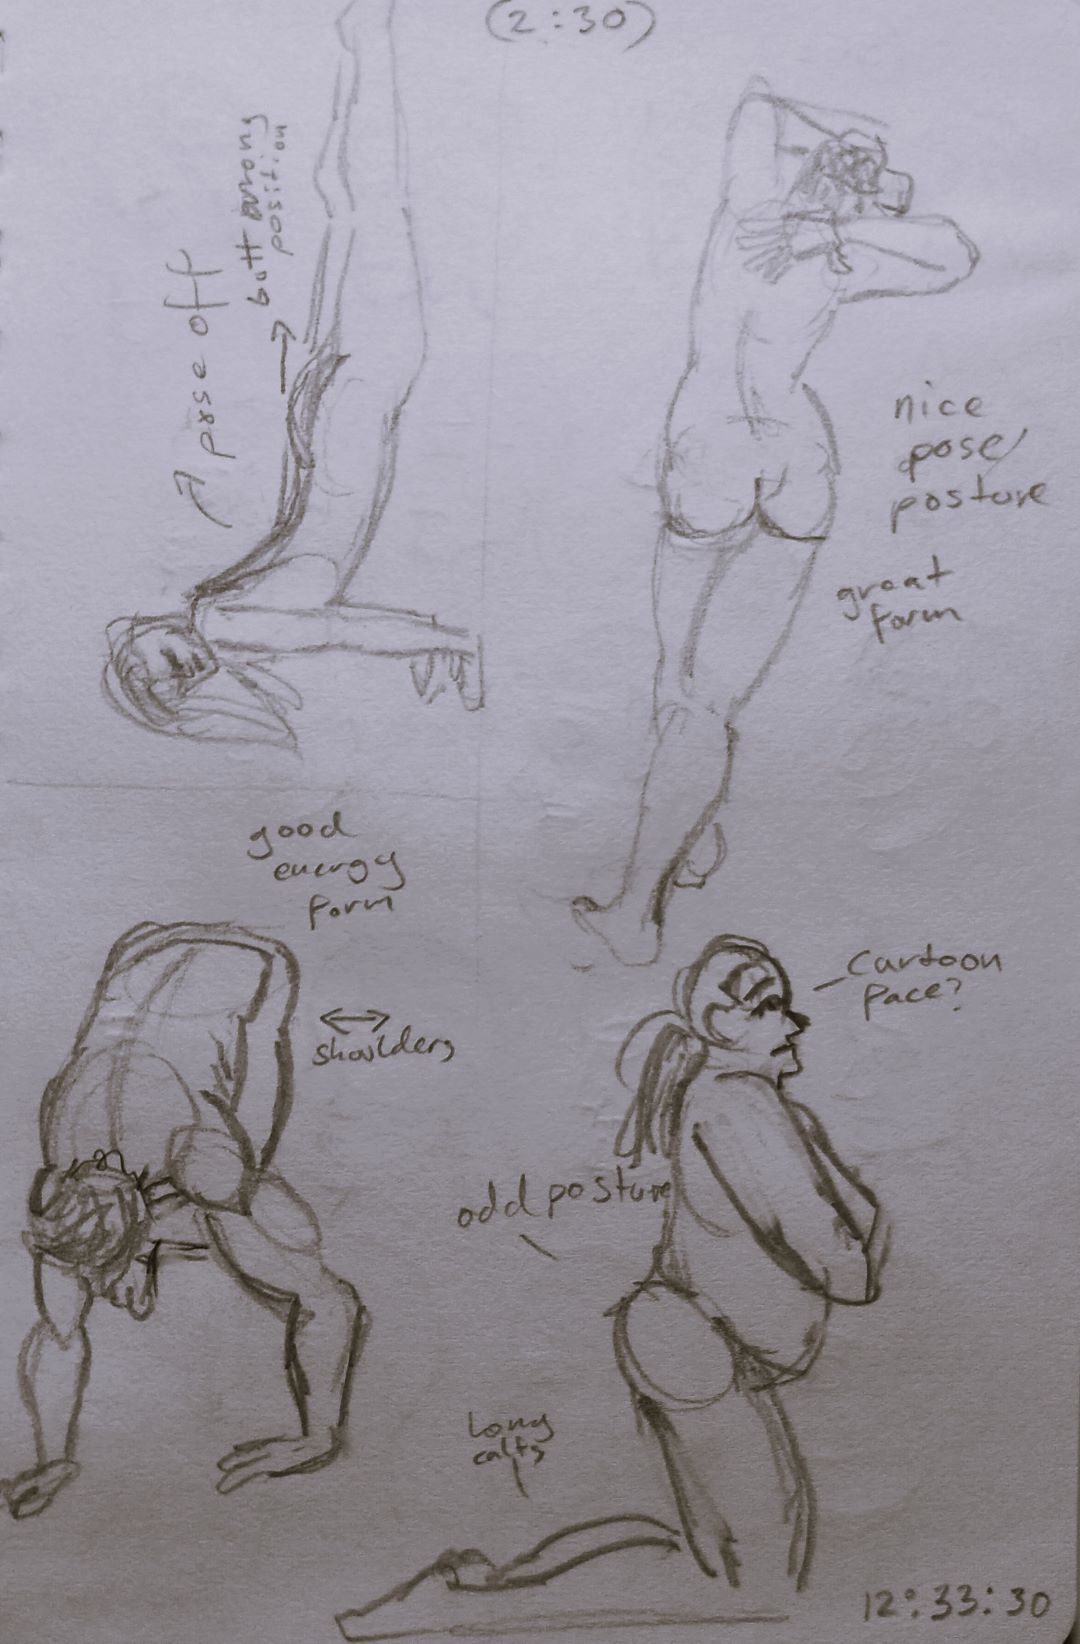 (2:30)
pose off
butt wrong
position
nice
pose/
posture
great
form
good
energy
form
shoulders
cartoon
face?
odd posture
long
calfs
12:33:30